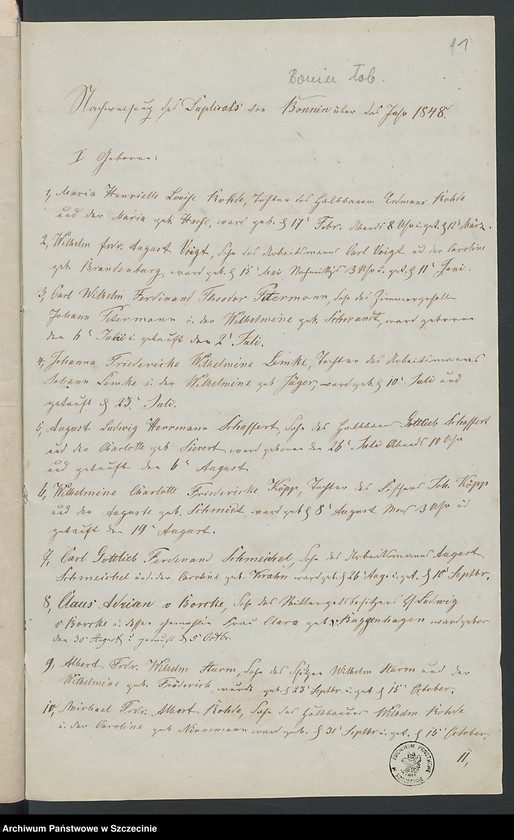 91
Bonin Lab.
Nachweisung des Duplicats von Bonnin über das Jahr 1848.
I Geborne:
1, Maria Henriette Louise Rohde, Tochter des Halbbauern Rohde
und der Maria geb. ward geb. d 17t Febr. Abends 8 Uhr u. get. d 12t März.
2, Wilhelm Frdr. August Voigt, Sohn des Arbeitsmanns Carl Voigt ud der Caroline
geb. Brandenburg, ward geb. d 15t Mai Nachmittgs 3 Uhr u. get. d 11t Juni.
3, Carl Wilhelm Ferdinand Theodor Petermann, Sohn des Zimmergesellen
Johann Petermann u. der Wilhelmine geb. ward geboren
den 6t u getauft den 2t Juli.
4, Johanna Friederike Wilhelmine Lemke, Tochter des Arbeitsmannes
Johann Lemke u. der Wilhelmine geb Jäger, ward geb. d 10t Juli und
getauft d. 23t Juli.
5, August Ludwig Herrmann Schaffert, Sohn des Halbbauern Gottlieb Schaffert
und der Charlotte geb. Sievert, ward geboren den 26t Juli Abends 10 Uhr
und getauft den 6t August
6, Wilhelmine Charlotte Friedericke Köpp, Tochter des Fischers Joh. Köpp
und der Auguste geb. Schmidt, ward geb d 8t August Mor 3 Uhr u
getauft den 19t August.
7, Carl Gottlieb Ferdinand Schmeichel, Sohn des Arbeitsmanns August
Schmeichel und der Caroline geb. Krahn ward geb. d 26t Aug. u. get. d 10t Septbr.
8, Claus Adrian v Borcke, Sohn des Rittergutsbesitzers H Ludwig
v Borcke u. dessen Gemahlin Frau Clara geb v Baggenhagen ward gebor
den 30t August u getauft d. 5t Octbr.
9, Albert Frdr. Wilhelm Sturm, Sohn des Wilhelm Sturm und der
Wilhelmine geb. Fröderich, wurde geb. d 23t Septbr u. get. d 15t October.
10, Michael Frdr. Albert Rohde, Sohn des Halbbauers Wilhelm Rohde
u. der Caroline geb. ward geb. d 31t Septbr u. get. d 15t October.
11,
Archiwum Państwowe w Szczecinie